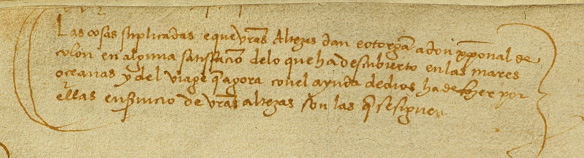 Las cosas suplicadas e que vras Altezas dan e otorgan a don xpoual de
colon en alguna satisfacion delo que ha descubierto en las mares
oceanas y del viage q agora con el ayuda de dios ha de fazer por
ellas en seruicio de vras altezas son las q se siguen